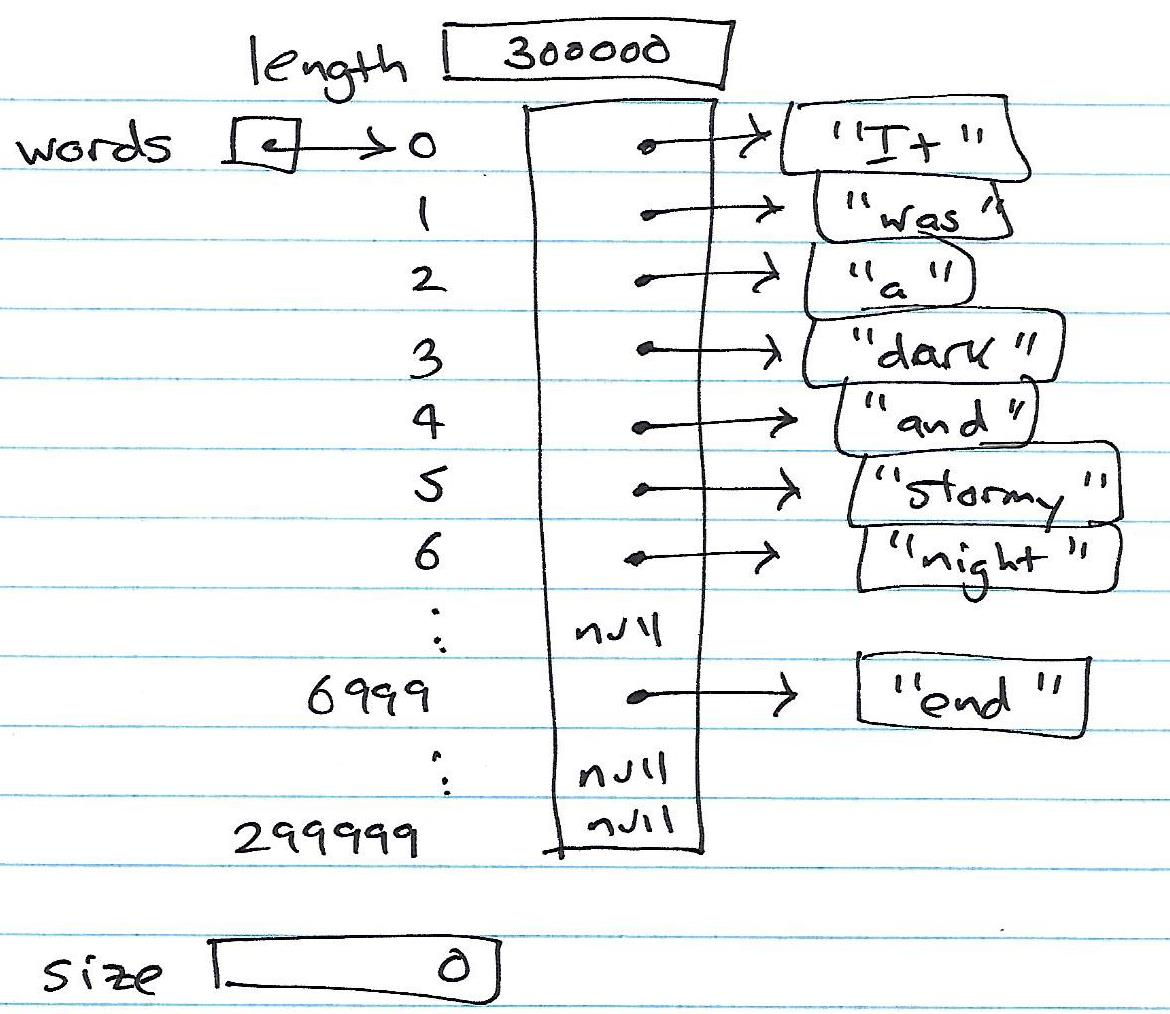 length 300000
words 0 "It"
1 "was"
2 "a"
3 "dark"
4 "and"
5 "stormy"
6 "night"
: null
6999 "end"
: null
299999 null
size 0